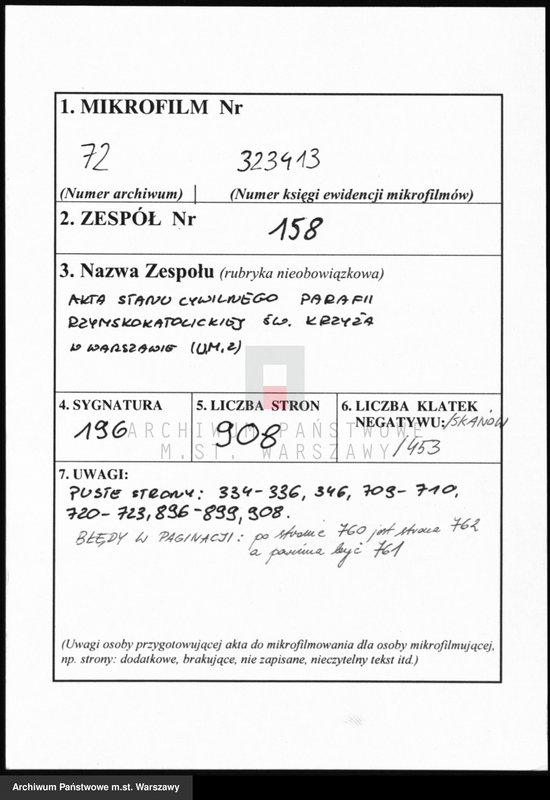 1. MIKROFILM Nr
72 323413
(Numer archiwum) (Numer księgi ewidencji mikrofilmów)
2. ZESPÓŁ Nr 158
3. Nazwa Zespołu (rubryka nieobowiązkowa)
AKTA STANU CYWILNEGO PARAFII
RZYMSKOKATOLICKIEJ ŚW. KRZYŻA
W WARSZAWIE (UM.Z)
4. SYGNATURA
196
5. LICZBA STRON
908
6. LICZBA KLATEK
NEGATYWU: /SKANÓW
/453
ARCHIWUM PAŃSTWOWE
M.ST. WARSZAWY
7. UWAGI:
PUSTE STRONY: 334-336, 346, 709-710,
720-723, 896-899, 908.
BŁĘDY W PAGINACJI: po stronie 760 jest strona 762
a powinna być 761
(Uwagi osoby przygotowującej akta do mikrofilmowania dla osoby mikrofilmującej,
np. strony: dodatkowe, brakujące, nie zapisane, nieczytelny tekst itd.)
Archiwum Państwowe m.st. Warszawy